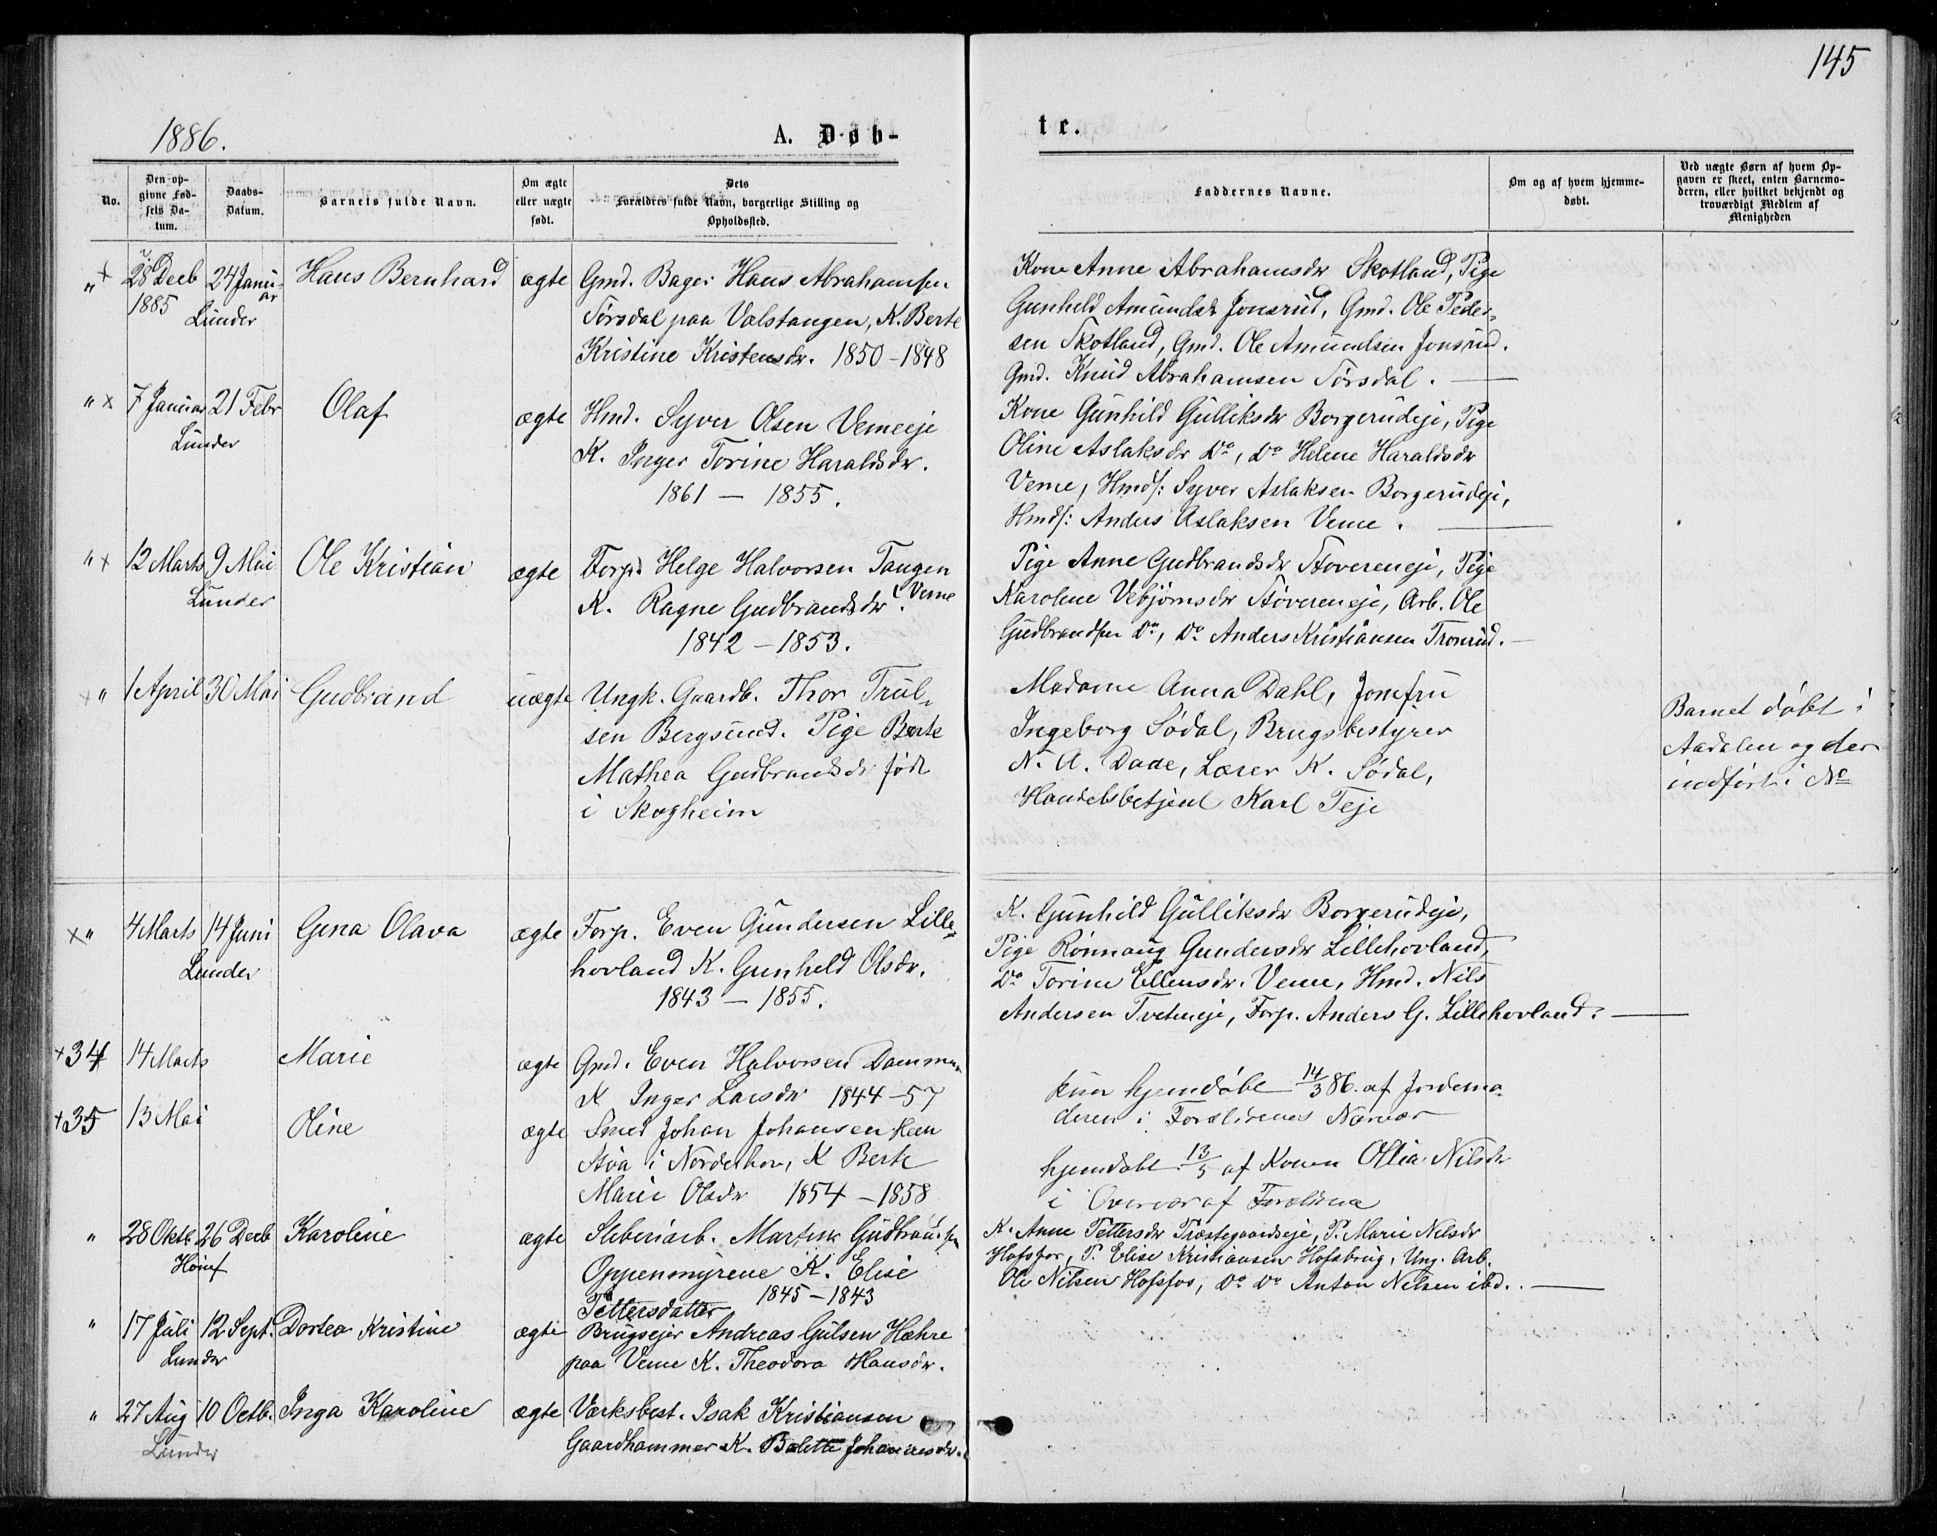 145
1886. A. Døb- te.
No.
Den op-
givne Fød-
sels Da-
tum.
Daabs-
Datum.
Barnets fulde Navn.
Om ægte
eller uægte
født.
Dets
Forældres fulde Navn, borgerlige Stilling og
Opholdssted.
Faddernes Navne.
Om og af hvem hjemme-
døbt.
Ved uægte Børn af hvem Op-
gaven er skeet, enten Barnemo-
deren, eller hvilket bekjendt og
troværdigt Medlem af
Menigheden
" 28 Decb 24 Janu- Hans Bernhard ægte Gmd. Bager Hans Abrahamsen
1885 ar
Lunder
Sørsdal paa Valstangen, K. Berte
Kristine Kristensdr. 1850-1848
Kone Anne Abrahamsdr Skotland, Pige
Gunhild Amundsdr Jonsrud, Gmd. Ole Peder-
sen Skotland, Gmd. Ole Amundsen Jonsrud.
Gmd. Knud Abrahamsen Sørsdal.
" x 7 Januar 21 Febr Olaf ægte Hmd. Syver Olsen Vemeeje
Lunder
K. Inger Torine Haraldsdr.
1861 - 1855.
Kone Gunhild Gulliksdr Borgerudeje, Pige
Oline Aslaksdr Do, Do Helene Haraldsdr
Veme, Hmds: Syver Aslaksen Borgerudeje,
Hmds: Anders Aslaksen Veme.
" x 12 Marts 9 Mai Ole Kristian ægte Forp. Helge Halvorsen Tangen
Lunder
K. Ragne Gudbrandsdr. Veme
1842 - 1853.
Pige Anne Gudbrandsdr Støvereneje, Pige
Karoline Vebjørnsdr Støvereneje, Arb. Ole
Gudbrandsen Do, Do Anders Kristiansen Tronrud.
x " 1 April 30 Mai Gudbrand uægte Ungk. Gaardb. Thor Trul-
sen Bergsund. Pige Berte
Mathea Gudbrandsdr født
i Skogheim
Madame Anna Dahl, Jomfru
Ingeborg Sødal, Brugsbestyrer
N. A. Daae, Lærer K. Sødal,
Handelsbetjent Karl Teje
Barnet døbt i
Aadalen og der
indført i No
x " 4 Marts 14 Juni Gina Olava ægte Forp. Even Gundersen Lille-
Lunder
hovland K. Gunhild Olsdr.
1843 - 1855.
K. Gunhild Gulliksdr Borgerudeje,
Pige Rønnaug Gundersdr Lillehovland,
Do Torine Ellensdr. Veme, Hmd. Nils
Andersen Tveteneje, Forp. Anders G. Lillehovland.
+ 34 14 Marts Marie ægte Gmd. Even Halvorsen Dammen
K Inger Larsdr 1844-57
kun hjemdøbt 14/3 86. af Jordemo-
deren i Forældrenes Nærvær
+ 35 13 Mai Oline ægte Smed Johan Johansen Heen
i Norderhov, K Berte
Marie Olsdr 1854 - 1858
hjemdøbt 13/5 af Konen Ollia Nilsdr
i Overvær af Forældrene
" 28 Oktb. 26 Decb Karoline ægte Sliberiarb. Martin Gudbrandsen
Hønef
Oppenmyrene K. Elise
Pettersdatter 1845 - 1843
K. Anne Pettersdr Præstegaardseje, P. Marie Nilsdr
Hofsfos, P. Elise Kristiansen Hofsbrug, Ung. Arb.
Ole Nilsen Hofsfos, Do Do Anton Nilsen ibd.
" 17 Juli 12 Sept. Dortea Kristine ægte Brugsejer Andreas Gulsen Hæhre
Lunder
paa Veme K. Theodora Hansdr.
" 27 Aug 10 Octb. Inga Karoline ægte Værksbest. Isak Kristiansen
Lunder
Gaardhammer K. Balette Johannesdr.